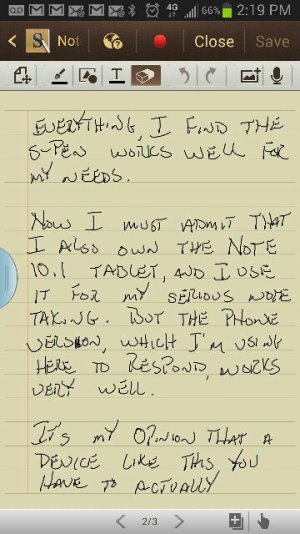 4G 66% 2:19 PM
S Not Close Save
T
EVERYTHING, I FIND THE
S-PEN WORKS WELL FOR
MY NEEDS.
NOW I MUST ADMIT THAT
I ALSO OWN THE NOTE
10.1 TABLET, AND I USE
IT FOR MY SERIOUS NOTE
TAKING. BUT THE PHONE
VERSION, WHICH I'M USING
HERE TO RESPOND, WORKS
VERY WELL.
IT'S MY OPINION THAT A
DEVICE LIKE THIS YOU
HAVE TO ACTUALLY
2/3